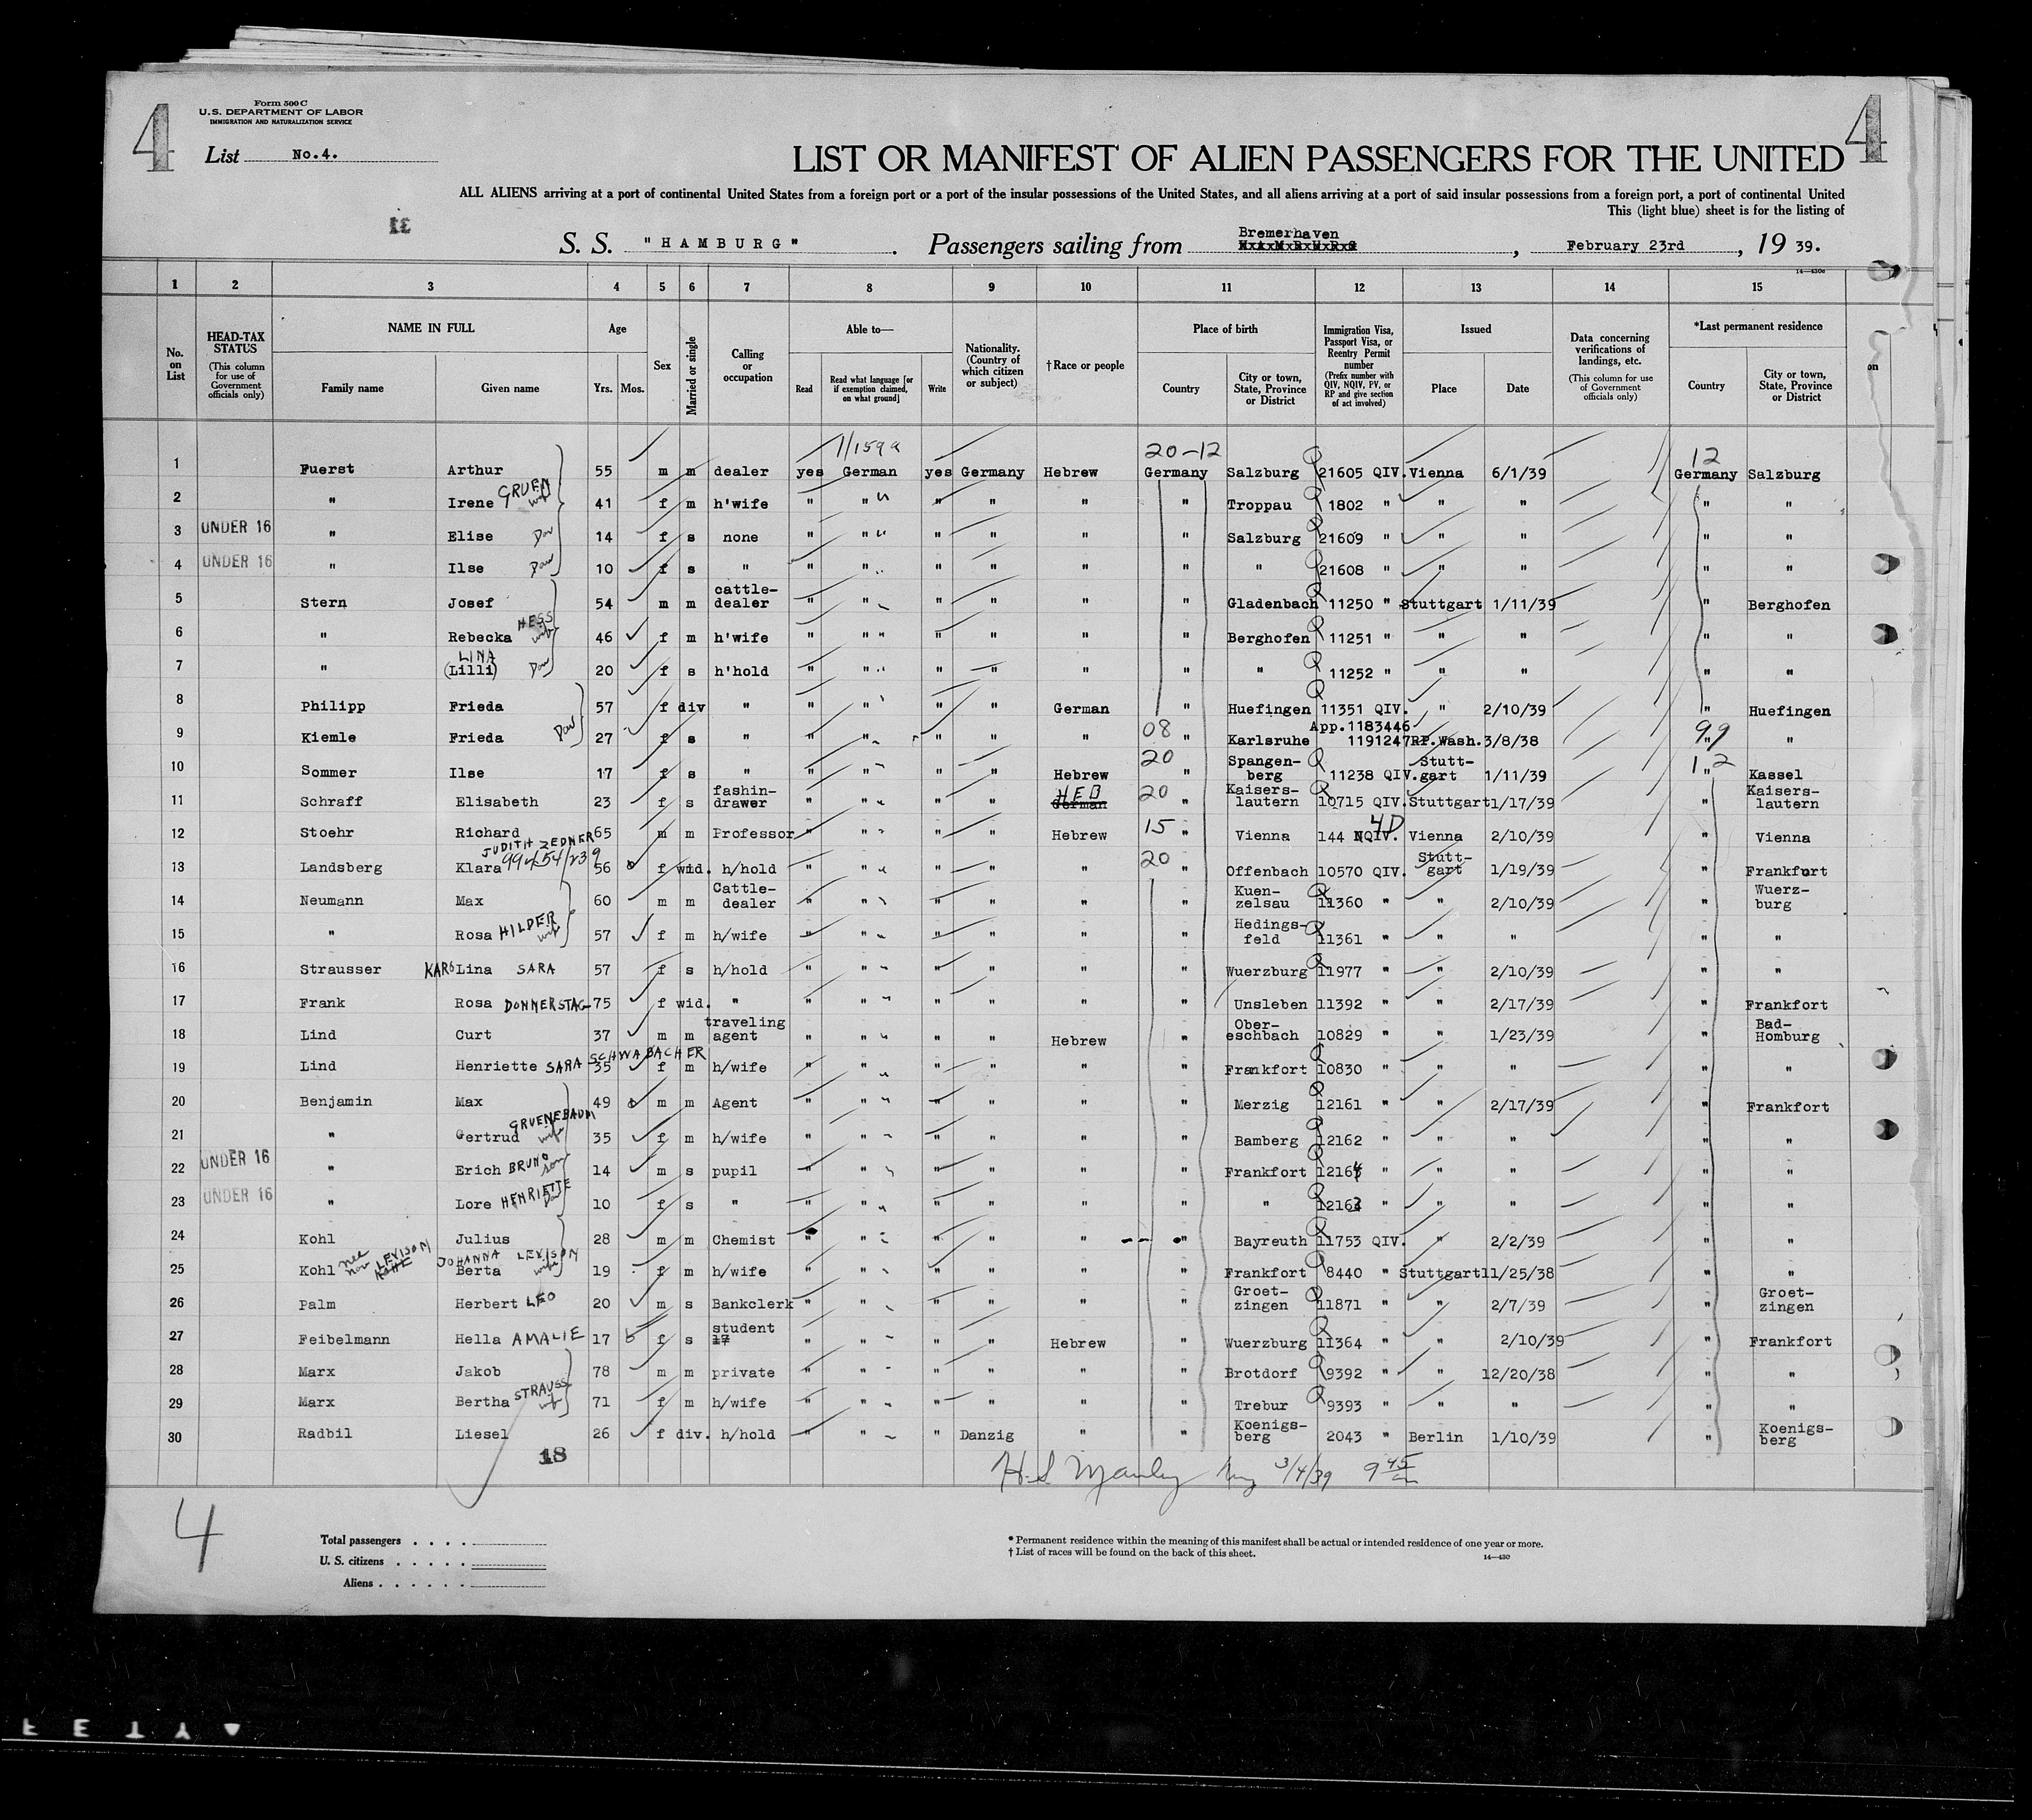 4
Form 500 C
U.S. DEPARTMENT OF LABOR
IMMIGRATION AND NATURALIZATION SERVICE
4
List No.4.
LIST OR MANIFEST OF ALIEN PASSENGERS FOR THE UNITED
ALL ALIENS arriving at a port of continental United States from a foreign port or a port of the insular possessions of the United States, and all aliens arriving at a port of said insular possessions from a foreign port, a port of continental United
This (light blue) sheet is for the listing of
S. S. "HAMBURG". Passengers sailing from Bremerhaven, February 23rd, 19 39.
14—430c
1 2 3 4 5 6 7 8 9 10 11 12 13 14 15
No. on List
HEAD-TAX STATUS (This column for use of Government officials only)
NAME IN FULL Family name Given name
Age Yrs. Mos.
Sex
Married or single
Calling or occupation
Able to— Read Read what language [or if exemption claimed, on what ground] Write
Nationality. (Country of which citizen or subject)
†Race or people
Place of birth Country City or town, State, Province or District
Immigration Visa, Passport Visa, or Reentry Permit number (Prefix number with QIV, NQIV, PV, or RP and give section of act involved)
Issued Place Date
Data concerning verifications of landings, etc. (This column for use of Government officials only)
*Last permanent residence Country City or town, State, Province or District
on
20-12 12
1 Fuerst Arthur 55 m m dealer yes German yes Germany Hebrew Germany Salzburg 21605 QIV. Vienna 6/1/39 Germany Salzburg
2 " Irene GRUEN wife 41 f m h'wife " " " " " " Troppau 1802 " " " " "
3 UNDER 16 " Elise Dau 14 f s none " " " " " " Salzburg 21609 " " " " "
4 UNDER 16 " Ilse Dau 10 f s " " " " " " " " 21608 " " " " "
5 Stern Josef 54 m m cattle-dealer " " " " " " Gladenbach 11250 " Stuttgart 1/11/39 " Berghofen
6 " Rebecka HESS wife 46 f m h'wife " " " " " " Berghofen 11251 " " " " "
7 " LINA (Lilli) Dau 20 f s h'hold " " " " " " " 11252 " " " " "
8 Philipp Frieda 57 f div " " " " " German " Huefingen 11351 QIV. " 2/10/39 " Huefingen
9 Kiemle Frieda Dau 27 f s " " " " " " 08 " Karlsruhe App.1183446 1191247 RP.Wash. 3/8/38 99 " "
10 Sommer Ilse 17 f s " " " " " Hebrew 20 " Spangen-berg 11238 QIV. Stutt-gart 1/11/39 12 " Kassel
11 Schraff Elisabeth 23 f s fashin-drawer " " " " HEB German 20 " Kaisers-lautern 10715 QIV. Stuttgart 1/17/39 " Kaisers-lautern
12 Stoehr Richard 65 m m Professor " " " " Hebrew 15 " Vienna 144 NQIV. 4D Vienna 2/10/39 " Vienna
13 Landsberg Klara JUDITH ZEDNER 56 f wid. h/hold " " " " " 20 " Offenbach 10570 QIV. Stutt-gart 1/19/39 " Frankfurt
14 Neumann Max 60 m m Cattle-dealer " " " " " " Kuen-zelsau 11360 " " 2/10/39 " Wuerz-burg
15 " Rosa HILDER wife 57 f m h/wife " " " " " " Hedings-feld 11361 " " " " "
16 Strausser Lina SARA 57 f s h/hold " " " " " " Wuerzburg 11977 " " 2/10/39 " "
17 Frank Rosa DONNERSTAG 75 f wid. " " " " " " " Unsleben 11392 " " 2/17/39 " Frankfort
18 Lind Curt 37 m m traveling agent " " " " Hebrew " Ober-eschbach 10829 " " 1/23/39 " Bad-Homburg
19 Lind Henriette SARA SCHWABACHER 35 f m h/wife " " " " " " Frankfort 10830 " " " " "
20 Benjamin Max 49 m m Agent " " " " " " Merzig 12161 " " 2/17/39 " Frankfort
21 " Gertrud GRUENEBAUM wife 35 f m h/wife " " " " " " Bamberg 12162 " " " " "
22 UNDER 16 " Erich BRUNO son 14 m s pupil " " " " " " Frankfort 12164 " " " " "
23 UNDER 16 " Lore HENRIETTE Dau 10 f s " " " " " " " " 12163 " " " " "
24 Kohl Julius 28 m m Chemist " " " " " " Bayreuth 11753 QIV. " 2/2/39 " "
25 Kohl nee LEVISON Berta JOHANNA LEVISON wife 19 f m h/wife " " " " " " Frankfort 8440 " Stuttgart 11/25/38 " "
26 Palm Herbert LEO 20 m s Bankclerk " " " " " " Groet-zingen 11871 " " 2/7/39 " Groet-zingen
27 Feibelmann Hella AMALIE 17 f s student 17 " " " " Hebrew " Wuerzburg 11364 " " 2/10/39 " Frankfort
28 Marx Jakob 78 m m private " " " " " " Brotdorf 9392 " " 12/20/38 " "
29 Marx Bertha STRAUSS wife 71 f m h/wife " " " " " " Trebur 9393 " " " " "
30 Radbil Liesel 26 f div. h/hold " " " Danzig " " Koenigs-berg 2043 " Berlin 1/10/39 " Koenigs-berg
18
3/4/39 9 45
4
Total passengers . . . .
U. S. citizens . . . . .
Aliens . . . . . .
* Permanent residence within the meaning of this manifest shall be actual or intended residence of one year or more.
† List of races will be found on the back of this sheet.
14—430